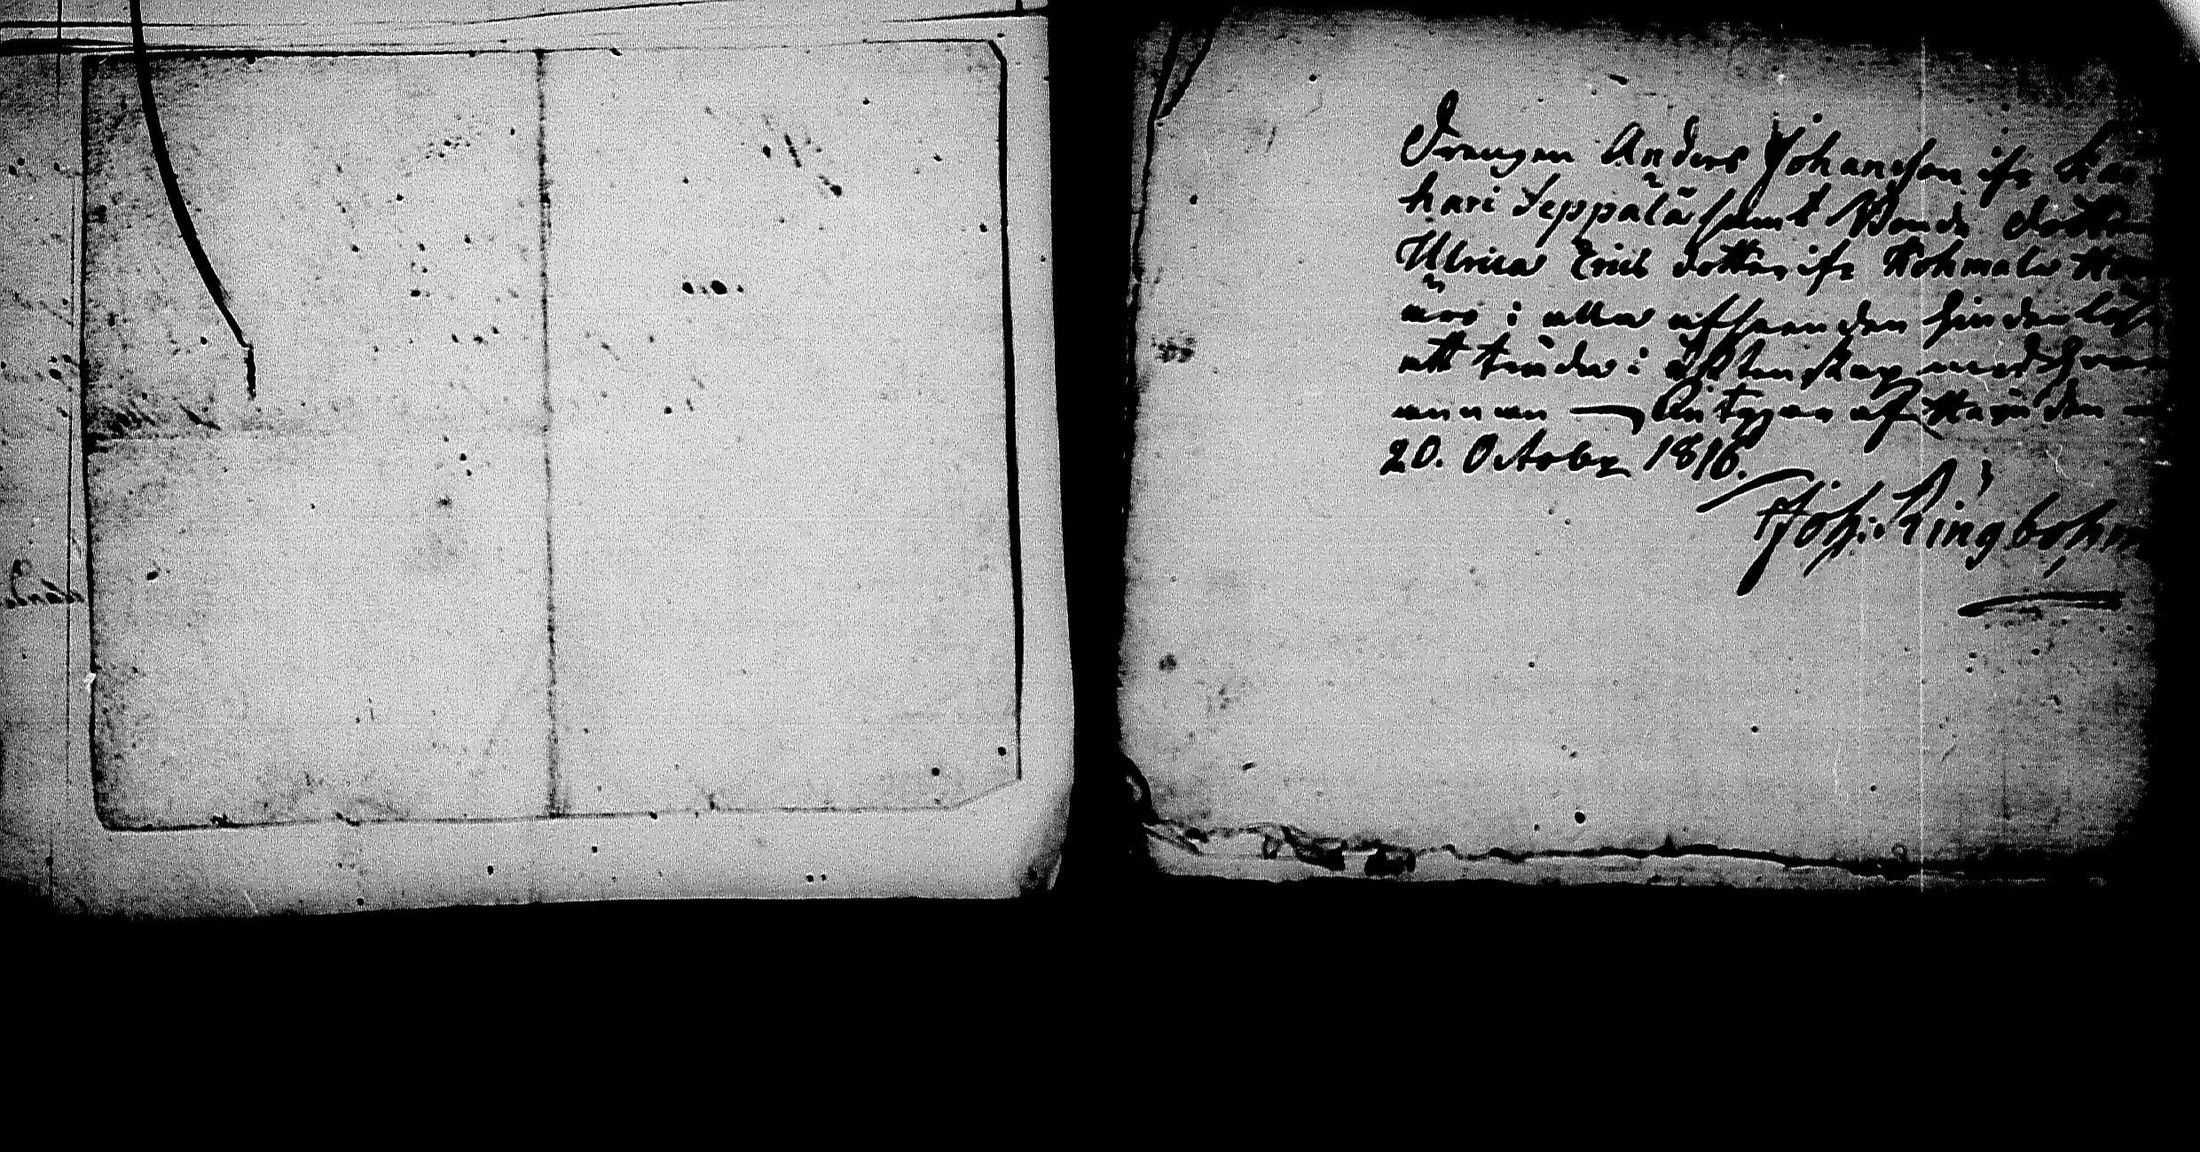 Drengen Anders Johansson ifr. Kan
hari Seppälä samt Bonde dotter
Ulrica Erics dotter ifr Kohmala
äro i alla afseenden hinderlös
att träda i Ägtenskap med hvar
annan — intygar af Harju den
20. October 1816.
Joh: Ringbohm